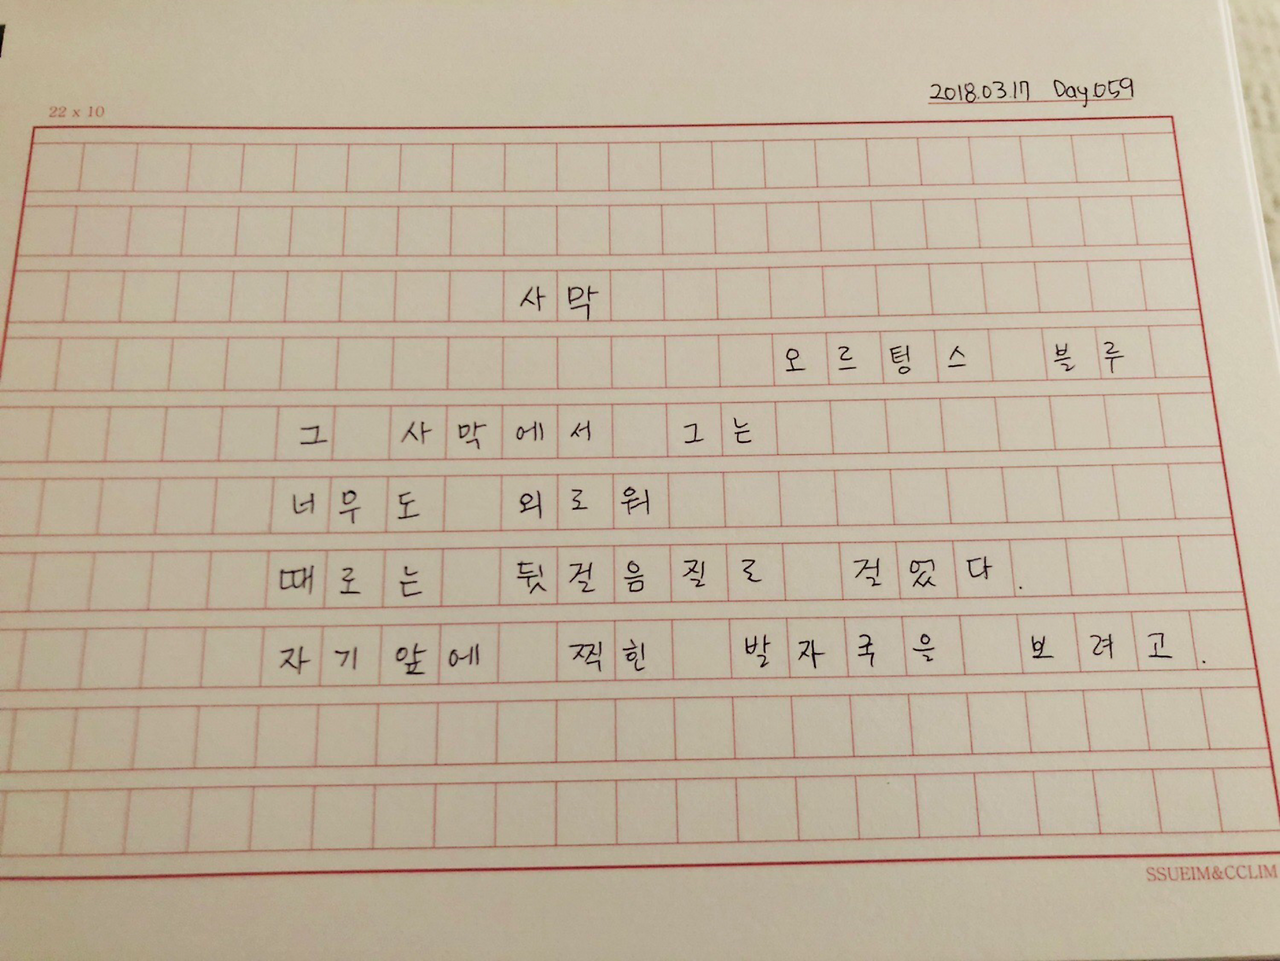 2018.03.17 Day.059
22 x 10
사막
오르텅스 블루
그 사막에서 그는
너무도 외로워
때로는 뒷걸음질로 걸었다.
자기앞에 찍힌 발자국을 보려고.
SSUEIM&CCLIM